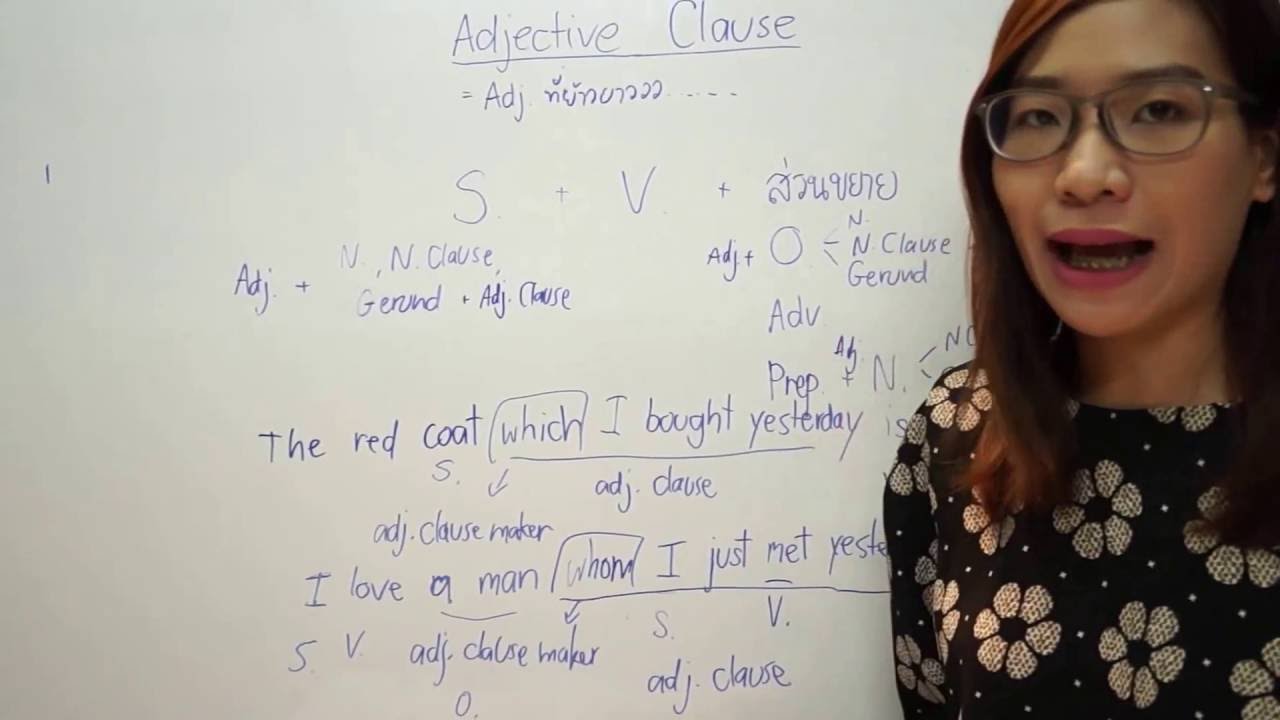 Adjective Clause
= Adj. ที่ยัวยาววว.....
S. + V. + ส่วนขยาย
N., N. Clause,
Adj. + Gerund + Adj. Clause
Adj + O N.
N. Clause
Gerund
Adv
Prep. + Adj N. N
The red coat which I bought yesterday is
S. adj. clause
adj. clause maker
I love a man whom I just met yeste
S. V. adj. clause maker S. V.
O. adj. clause